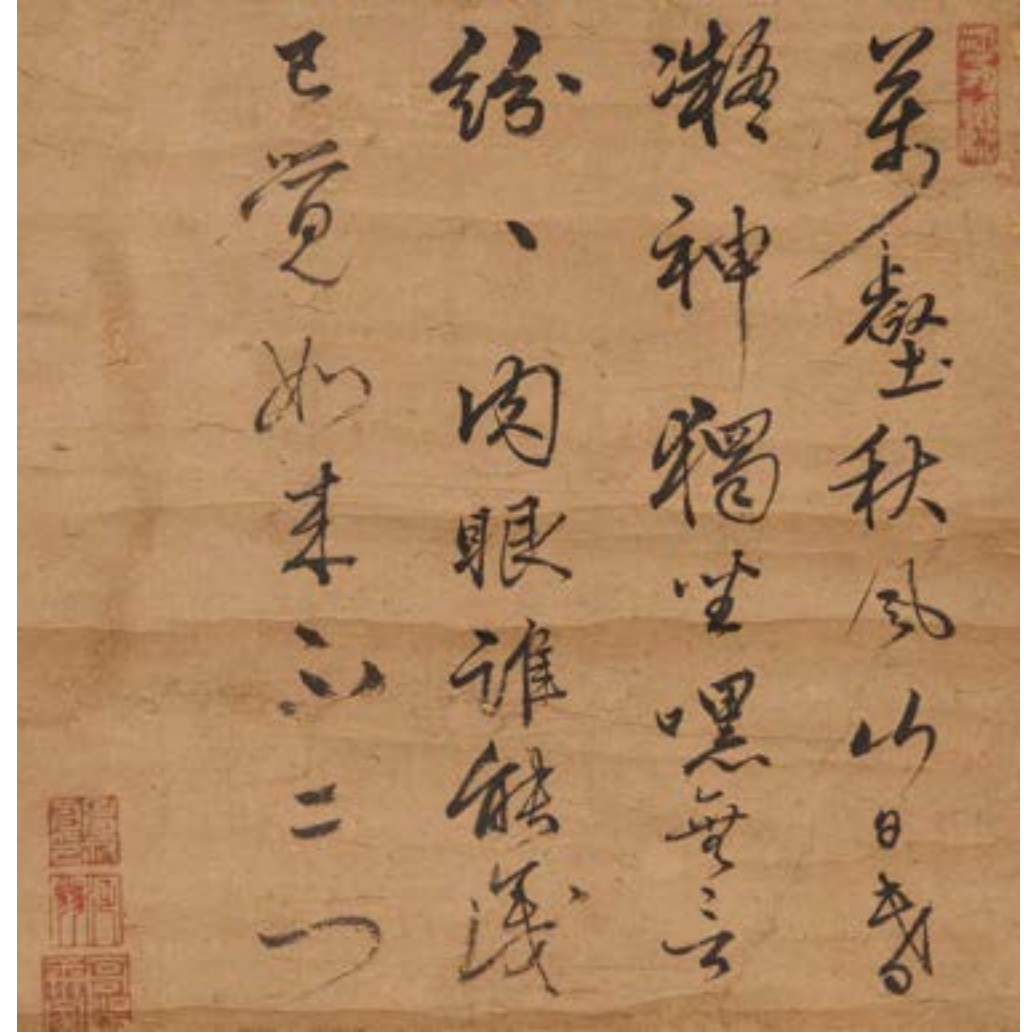 萬壑秋風山日昏
凝神獨坐嘿無言
紛〻肉眼誰能識
已覺如来不二門